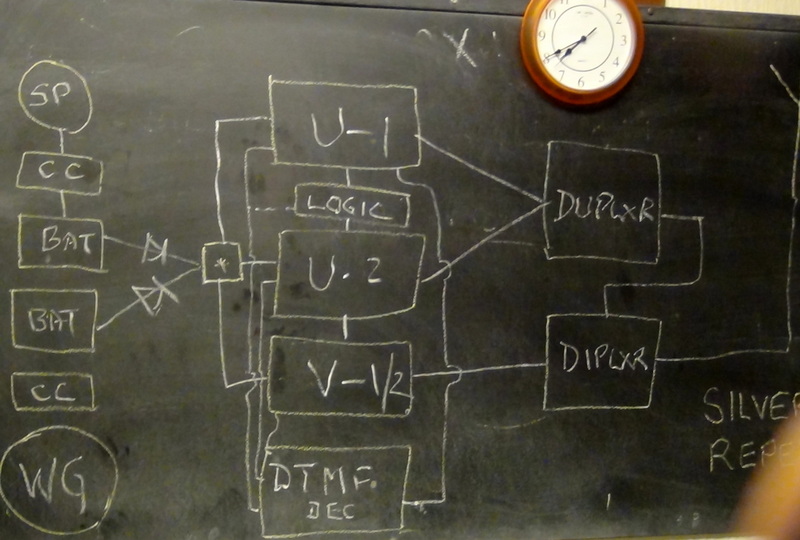 SP
CC
BAT
BAT
CC
WG
*
U-1
LOGIC
U-2
V-1/2
DTMF
DEC
X
10
1
2
3
4
5
6
7
8
9
DUPLXR
DIPLXR
SILVER
REPE